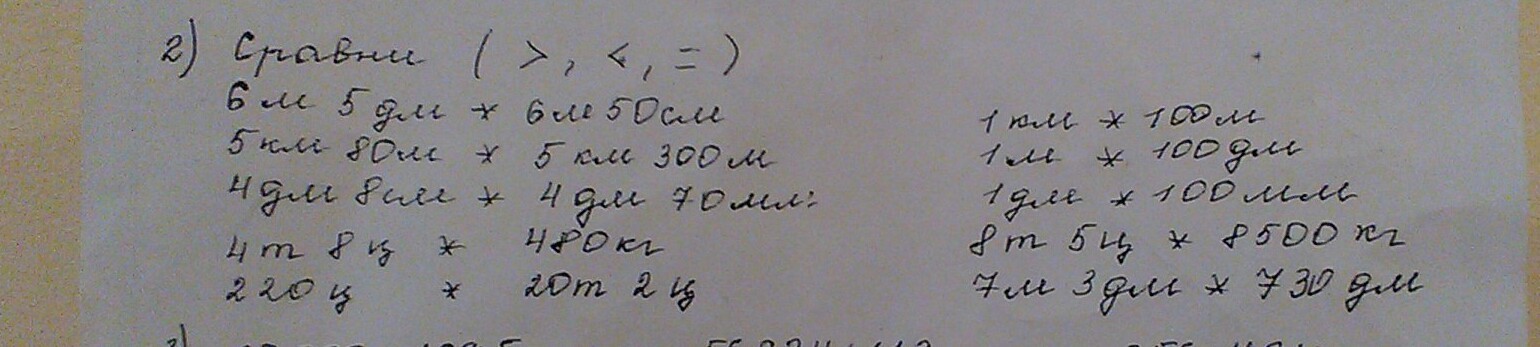 2) Сравни ( >, <, = )
6 м 5 дм * 6 м 50 см
5 км 80 м * 5 км 300 м
4 дм 8 см * 4 дм 70 мм
4 т 8 ц * 480 кг
220 ц * 20 т 2 ц
1 км * 100 м
1 м * 100 дм
1 дм * 100 мм
8 т 5 ц * 8500 кг
7 м 3 дм * 730 дм